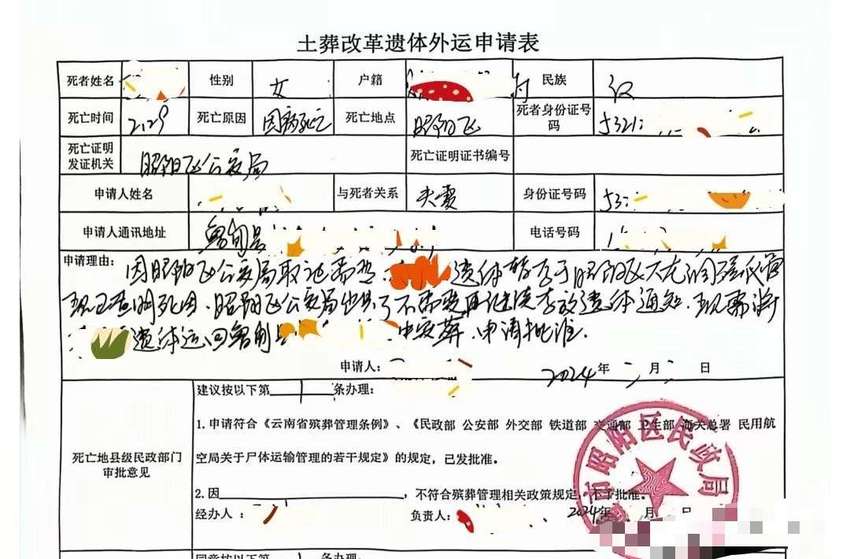 土葬改革遗体外运申请表
死者姓名 性别 女 户籍 村 民族 汉
死亡时间 2.29 死亡原因 因病死亡 死亡地点 昭阳区 死者身份证号码 5321
死亡证明发证机关 昭阳区公安局 死亡证明证书编号
申请人姓名 与死者关系 夫妻 身份证号码 53
申请人通讯地址 鲁甸县 电话号码 1
申请理由：因昭阳区公安局取证需要 遗体暂存于昭阳区大龙洞殡仪馆
现已查明死因，昭阳区公安局出具了不需要再继续存放遗体通知，现需将
遗体运回鲁甸县 中安葬，申请批准。
申请人： 2024年 月 日
死亡地县级民政部门审批意见
建议按以下第 1 条办理：
1.申请符合《云南省殡葬管理条例》、《民政部 公安部 外交部 铁道部 交通部 卫生部 海关总署 民用航
空局关于尸体运输管理的若干规定》的规定，已发批准。
2.因 ，不符合殡葬管理相关政策规定，不予批准。
经办人： 负责人： 2024年
市昭阳区民政局
同意按以下第 条办理：